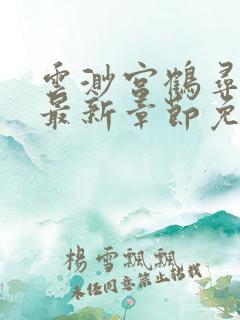 云渺宫鹤寻
最新章节免
楊雪飄飄
未经同意禁止转载